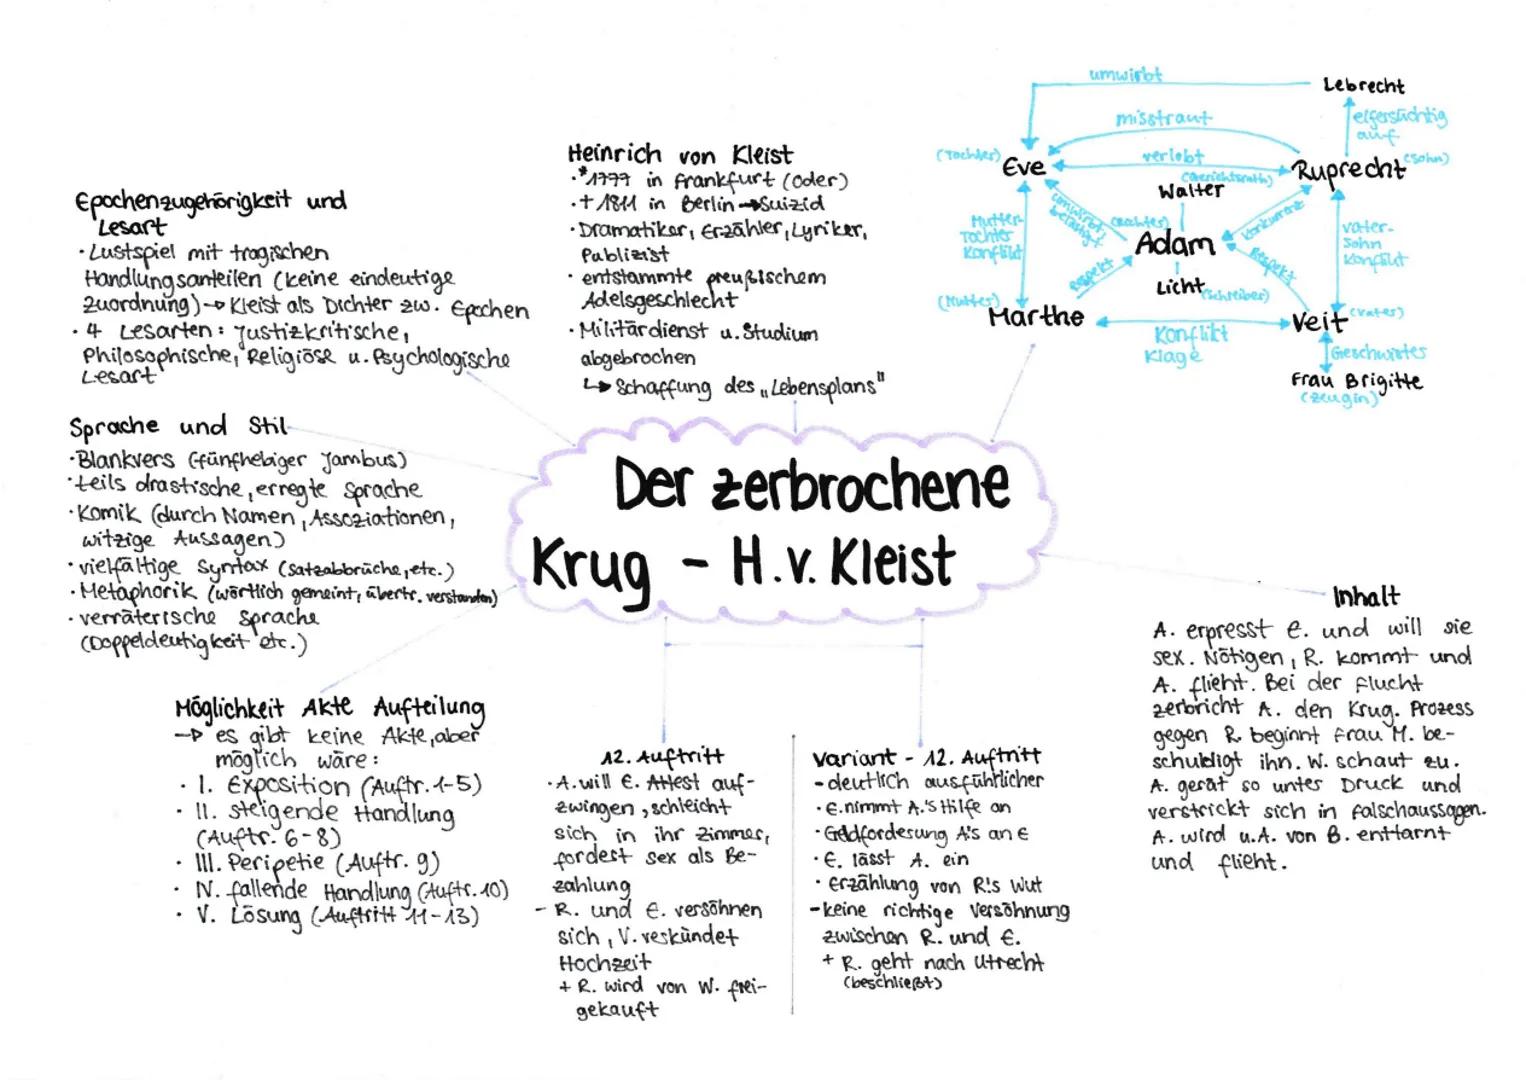 Epochenzugehörigkeit und
Lesart
· Lustspiel mit tragischen
Handlungsanteilen (keine eindeutige
Zuordnung) → Kleist als Dichter zw. Epochen
· 4 Lesarten: Justizkritische,
Philosophische, Religiöse u. Psychologische
Lesart
Sprache und Stil
· Blankvers (fünfhebiger Jambus)
· teils drastische, erregte Sprache
· Komik (durch Namen, Assoziationen,
witzige Aussagen)
· vielfältige Syntax (Satzabbrüche, etc.)
· Metaphorik (wörtlich gemeint, übertr. verstanden)
· verräterische Sprache
(Doppeldeutigkeit etc.)
Möglichkeit Akte Aufteilung
→ es gibt keine Akte, aber
möglich wäre:
· I. Exposition (Auftr. 1-5)
· II. steigende Handlung
(Auftr. 6-8)
· III. Peripetie (Auftr. 9)
· IV. fallende Handlung (Auftr. 10)
· V. Lösung (Auftritt 11-13)
Heinrich von Kleist
· *1777 in Frankfurt (Oder)
· † 1811 in Berlin → Suizid
· Dramatiker, Erzähler, Lyriker,
Publizist
· entstammte preußischem
Adelsgeschlecht
· Militärdienst u. Studium
abgebrochen
↳ Schaffung des „Lebensplans"
Der zerbrochene
Krug - H.v. Kleist
umwirbt
Lebrecht
misstraut
eifersüchtig
auf
(Tochter)
Eve
verlobt
Ruprecht
(Sohn)
(Gerichtsrath)
Walter
umwirbt,
belästigt
(Richter)
Adam
Konkurrenz
Mutter-
Tochter
Konflikt
Vater-
Sohn
Konflikt
Respekt
Respekt
Licht
(Schreiber)
(Mutter)
Marthe
Konflikt
Klage
Veit
(Vater)
Geschwister
Frau Brigitte
(Zeugin)
12. Auftritt
· A. will E. Attest auf-
zwingen, schleicht
sich in ihr Zimmer,
fordert Sex als Be-
zahlung
- R. und E. versöhnen
sich, V. verkündet
Hochzeit
+ R. wird von W. frei-
gekauft
Variant - 12. Auftritt
- deutlich ausführlicher
· E. nimmt A.'s Hilfe an
· Geldforderung A's an E
· E. lässt A. ein
· Erzählung von R!s Wut
- keine richtige Versöhnung
zwischen R. und E.
+ R. geht nach Utrecht
(beschließt)
Inhalt
A. erpresst E. und will sie
sex. Nötigen, R. kommt und
A. flieht. Bei der Flucht
zerbricht A. den Krug. Prozess
gegen R. beginnt Frau M. be-
schuldigt ihn. W. schaut zu.
A. gerät so unter Druck und
verstrickt sich in Falschaussagen.
A. wird u.A. von B. enttarnt
und flieht.